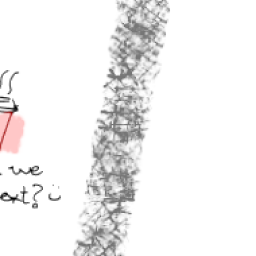 we
ext? :)